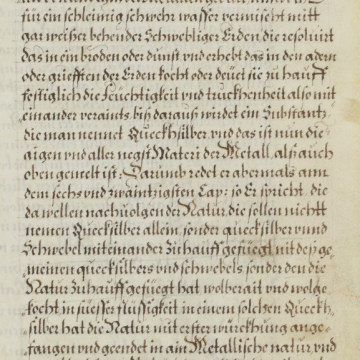 für ein schleimig schwehr wasser vermischt mitt
gar weißer behender Schwebliger Erden die resoluirt
das in ein broden oder dunst vnd erhebt das in den adern
oder grieften der Erden kocht oder deüet sie zu hauff
festiglich die feuchtigkeit vnd truckhenheit also mit
einander veraints biß daraus wirdet ein Substantz
die man nennet Queckhsilber vnd das ist nun die
aigen vnd aller negst Materi der Metall, alß auch
oben gemelt ist: Darumb redet er abermals ann
dem sechs vnd zwäntzigsten Cap: so Er spricht die
da wellen nachuolgen der Natur die sollen nichtt
nemen Quecksilber allein, sonder quecksilber vnnd
Schwebel miteinander zu hauff gefüegt nit deß ge
meinen quecksilbers vnd schwebels sonder den die
Natur zuhauff gefüegt hat wolberait vnd wolge
kocht in suesser flüssigkeit in einem solchen Queckh
silber hat die Natur mit erster würckhung ange
fangen vnd geendet in ain Metallische natur vnd